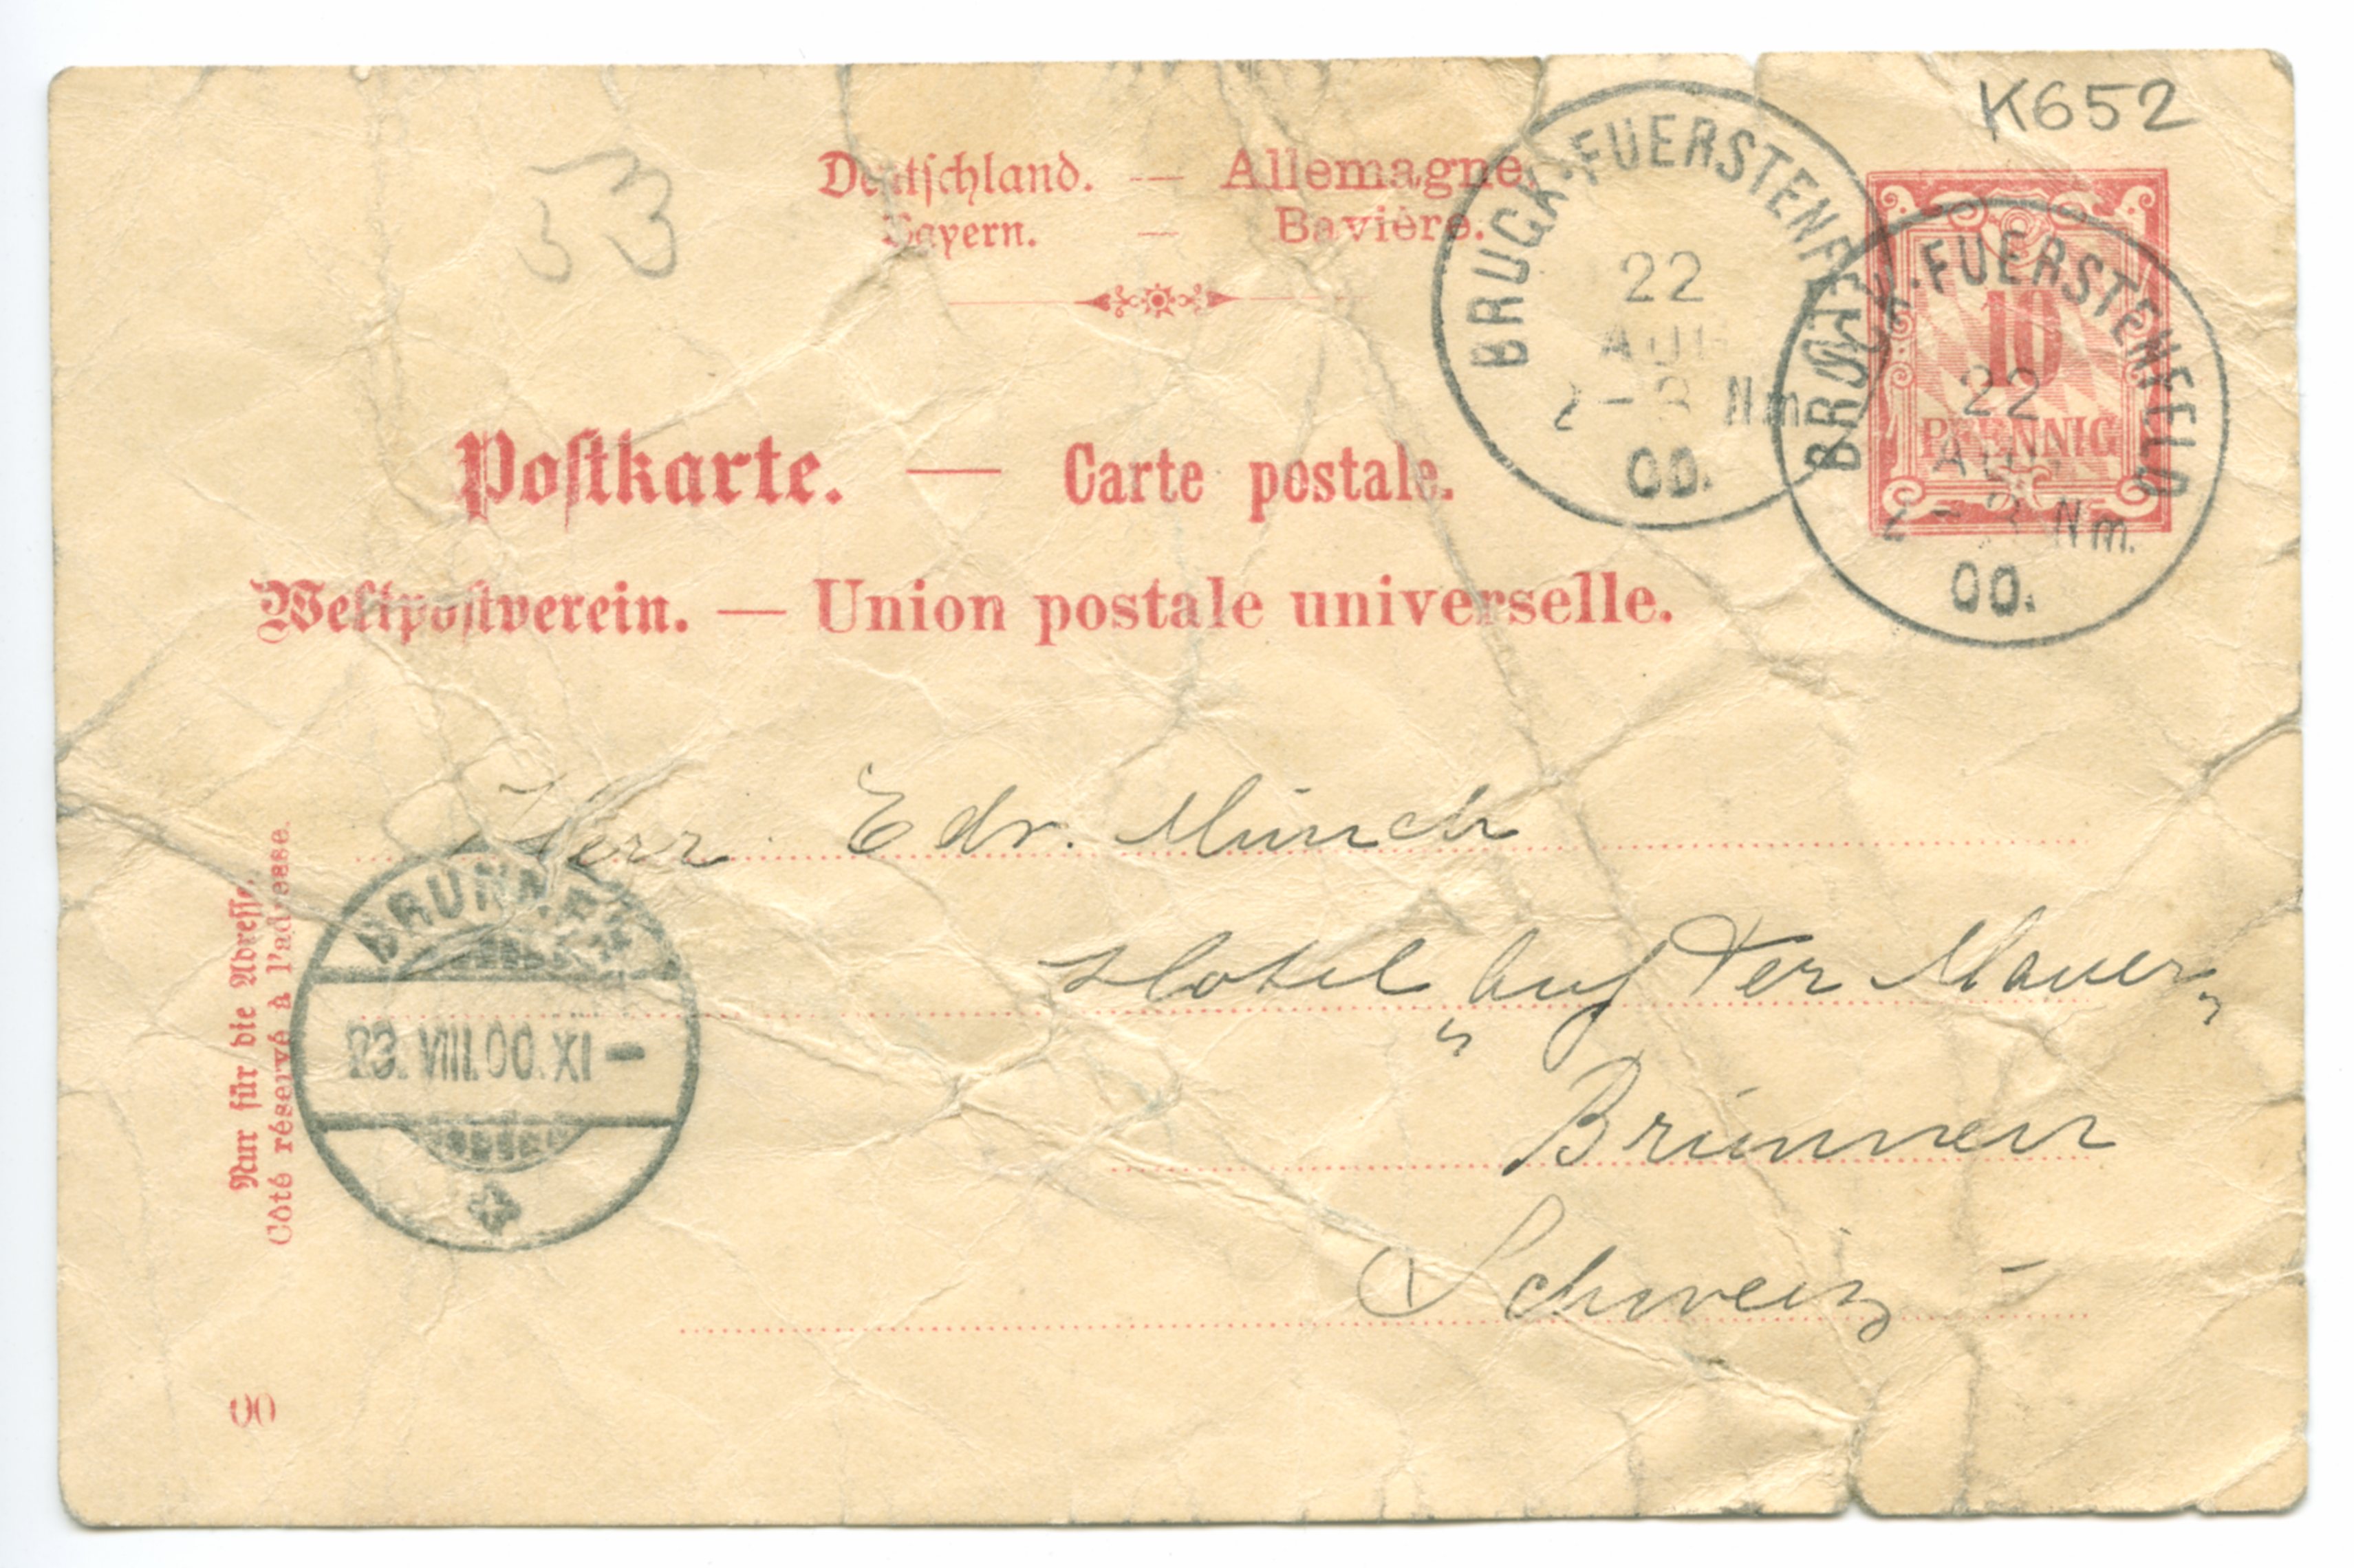 K652
53
Deutschland. — Allemagne.
Bayern. — Bavière.
BRUCK·FUERSTENFELD
22
AUG
2-3 Nm.
00.
BRUCK·FUERSTENFELD
22
AUG
2-3 Nm.
00.
10
PFENNIG
Postkarte. — Carte postale.
Weltpostverein. — Union postale universelle.
Herr Edr. Münch
Hotel „auf der Mauer“
Brünnen
Schweiz
BRUNNEN
23. VIII. 00. XI –
Nur für die Adresse.
Côté réservé à l'adresse.
00